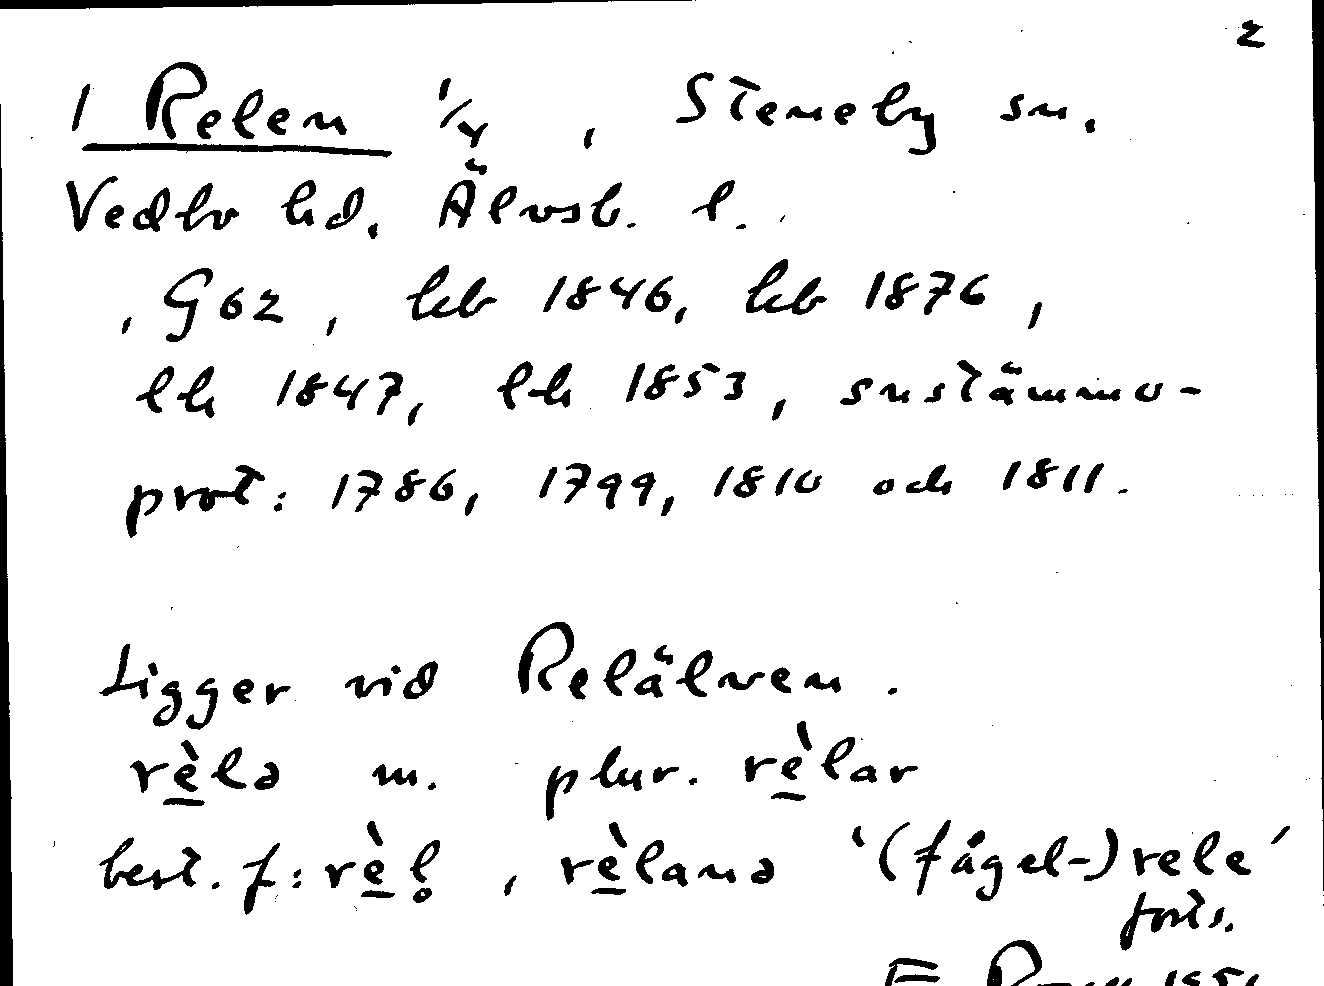 2
1 Relen 1/4 , Steneby sn.
Vedbo hd. Älvsb. l.
, G62, hb 1846, hb 1876,
lh 1847, lh 1853, snstämmo-
prot: 1786, 1799, 1810 och 1811.
Ligger vid Relälven.
rèlə m. plur. rèlar
best. f: rèl̥ , rèlana '(fågel-)rele'
forts.